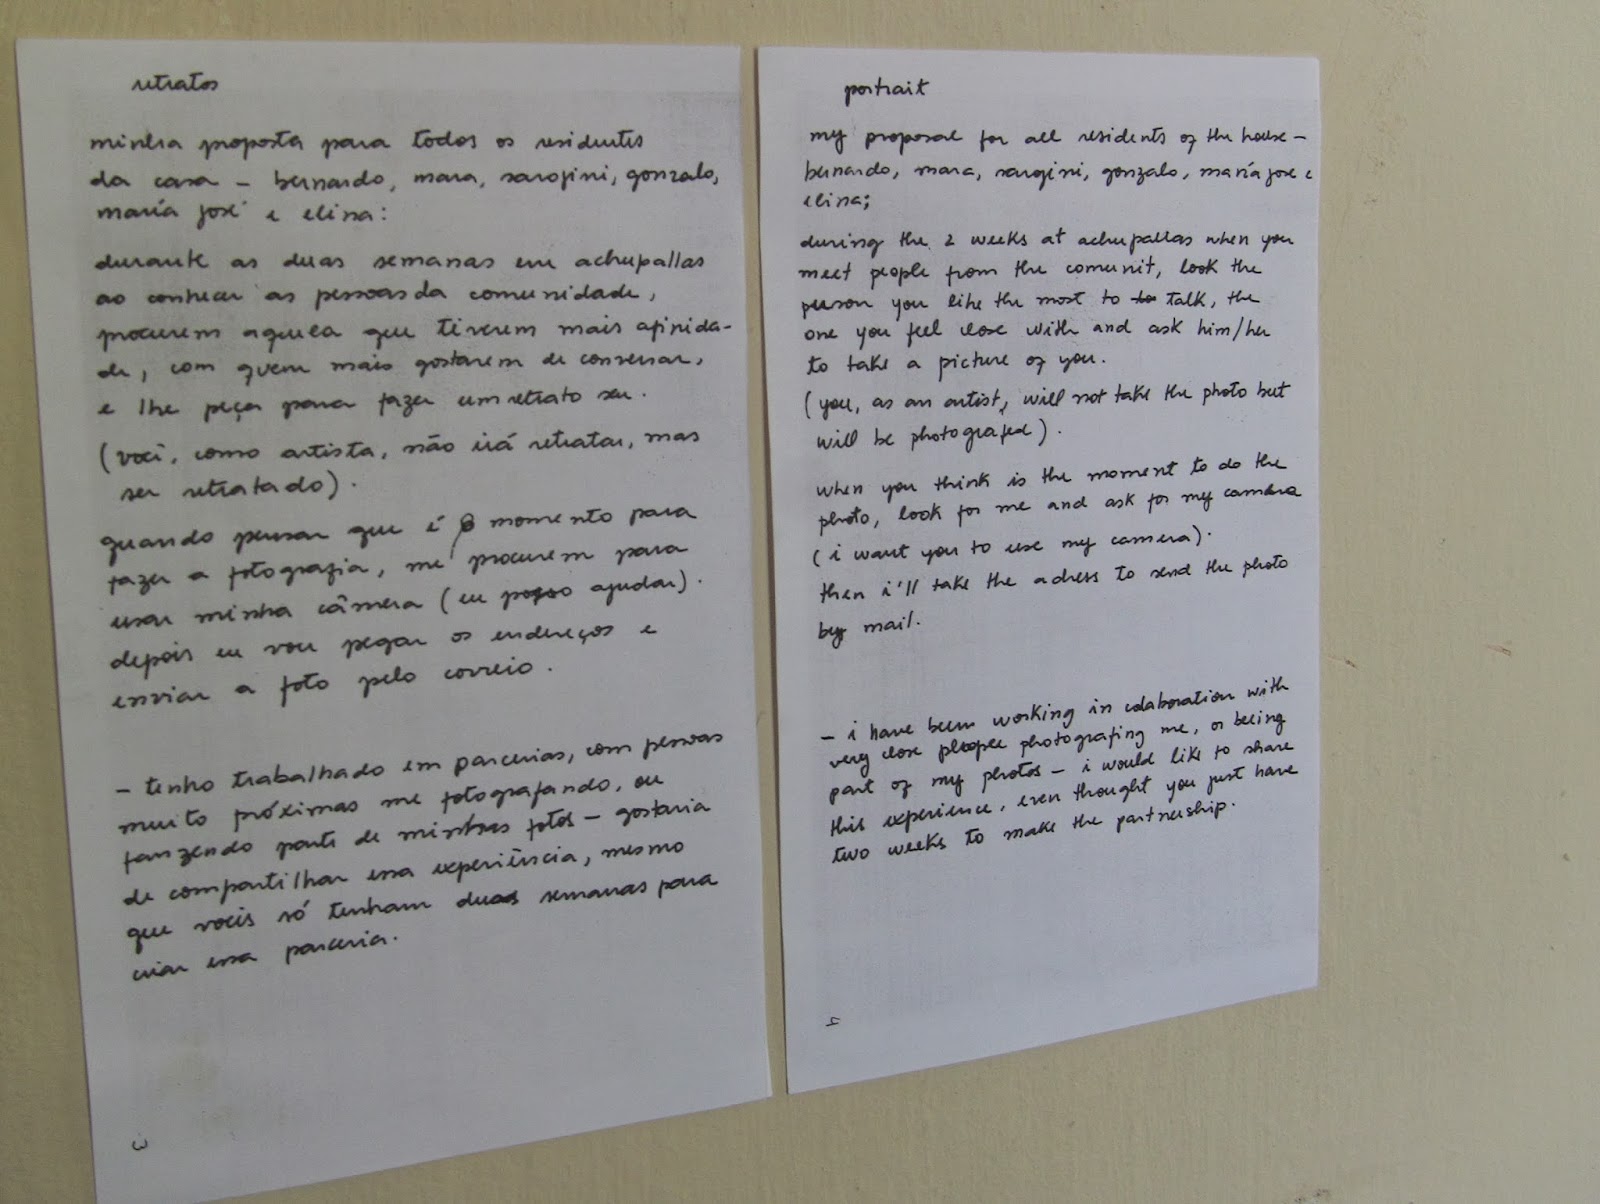 retratos
minha proposta para todos os residentes
da casa – bernardo, mara, sarojini, gonzalo,
maría josé e elisa:
durante as duas semanas em achupallas
ao conhecer as pessoas da comunidade,
procurem aquela que tiverem mais afinida-
de, com quem mais gostarem de conversar,
e lhe peça para fazer um retrato seu.
(você, como artista, não irá retratar, mas
ser retratado).
quando pensar que é o momento para
fazer a fotografia, me procurem para
usar minha câmera (eu posso ajudar).
depois eu vou pegar os endereços e
enviar a foto pelo correio.
– tenho trabalhado em parcerias, com pessoas
muito próximas me fotografando, ou
fanzendo parte de minhas fotos – gostaria
de compartilhar essa experiência, mesmo
que vocês só tenham duas semanas para
criar essa parceria.
3
portrait
my proposal for all residents of the house –
bernardo, mara, sarojini, gonzalo, maría jose e
elisa;
during the 2 weeks at achupallas when you
meet people from the comunit, look the
person you like the most to to talk, the
one you feel close with and ask him/her
to take a picture of you.
(you, as an artist, will not take the photo but
will be photografed).
when you think is the moment to do the
photo, look for me and ask for my camera
(i want you to use my camera).
then i'll take the adress to send the photo
by mail.
– i have been working in colaboration with
very close people photografing me, or being
part of my photos – i would like to share
this experience, even thought you just have
two weeks to make the partnership.